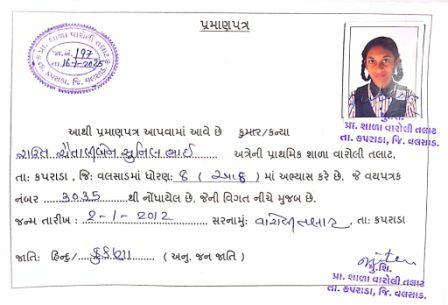 પ્રમાણપત્ર
પ્રા. શાળા વારોલી તલાટ
જા.નં. 197
તા. 16-7-2025
તા. કપરાડા, જિ. વલસાડ.
મુ.શિ.
પ્રા. શાળા વારોલી તલાટ
તા. કપરાડા, જિ. વલસાડ
આથી પ્રમાણપત્ર આપવામાં આવે છે કુમાર/કન્યા
રાઉત ચૈતાલીબેન સુનિલભાઈ અત્રેની પ્રાથમિક શાળા વારોલી તલાટ,
તા: કપરાડા, જિ: વલસાડમાં ધોરણ: 8 ( આઠ ) માં અભ્યાસ કરે છે. જે વયપત્રક
નંબર 3035 થી નોંધાયેલ છે. જેની વિગત નીચે મુજબ છે.
જન્મ તારીખ : 2-1-2012 સરનામું: વારોલી તલાટ, તા: કપરાડા
જાતિ: હિન્દુ/ કુકણા ( અનુ. જન જાતિ )
મુ.શિ.
પ્રા. શાળા વારોલી તલાટ
તા. કપરાડા, જિ. વલસાડ.